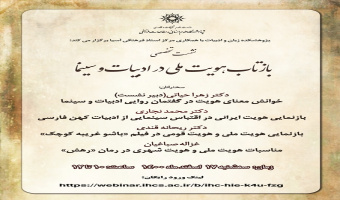 پژوهشکده زبان و ادبیات با همکاری مرکز اسناد فرهنگی آسیا برگزار می کند:
نشت تخصصی
بازتاب هویت ملی در ادبیات و سینما
سخنرانان:
دکتر زهرا حیاتی(دبیر نشست)
خوانش معنای هویت در گفتمان روایی ادبیات و سینما
دکتر محمد نجاری
بازنمایی هویت ایرانی در اقتباس سینمایی از ادبیات کهن فارسی
دکتر ریحانه قندی
بازنمایی هویت ملی و هویت قومی در فیلم «باشو غریبه کوچک»
غزاله صباغیان
مناسبات هویت ملی و هویت شهری در رمان «رهش»
زمان: سه‌شنبه ۱۷ اسفندماه ۱۴۰۰ ساعت: ۱۰ تا ۱۲
لینک ورود رایگان:
https://webinar.ihcs.ac.ir/b/ihc-hie-k4u-fzg